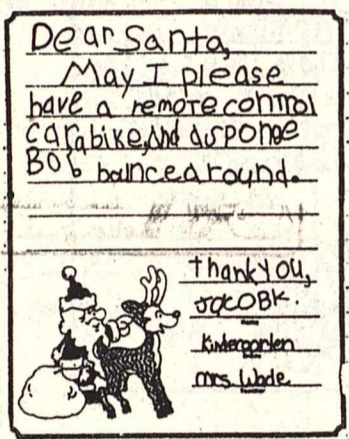 Dear Santa,
May I please
have a remote control
car, a bike, And a sponge
Bob bouncearound.
thank you,
Jacob K.
Kindergarten
mrs. Wade